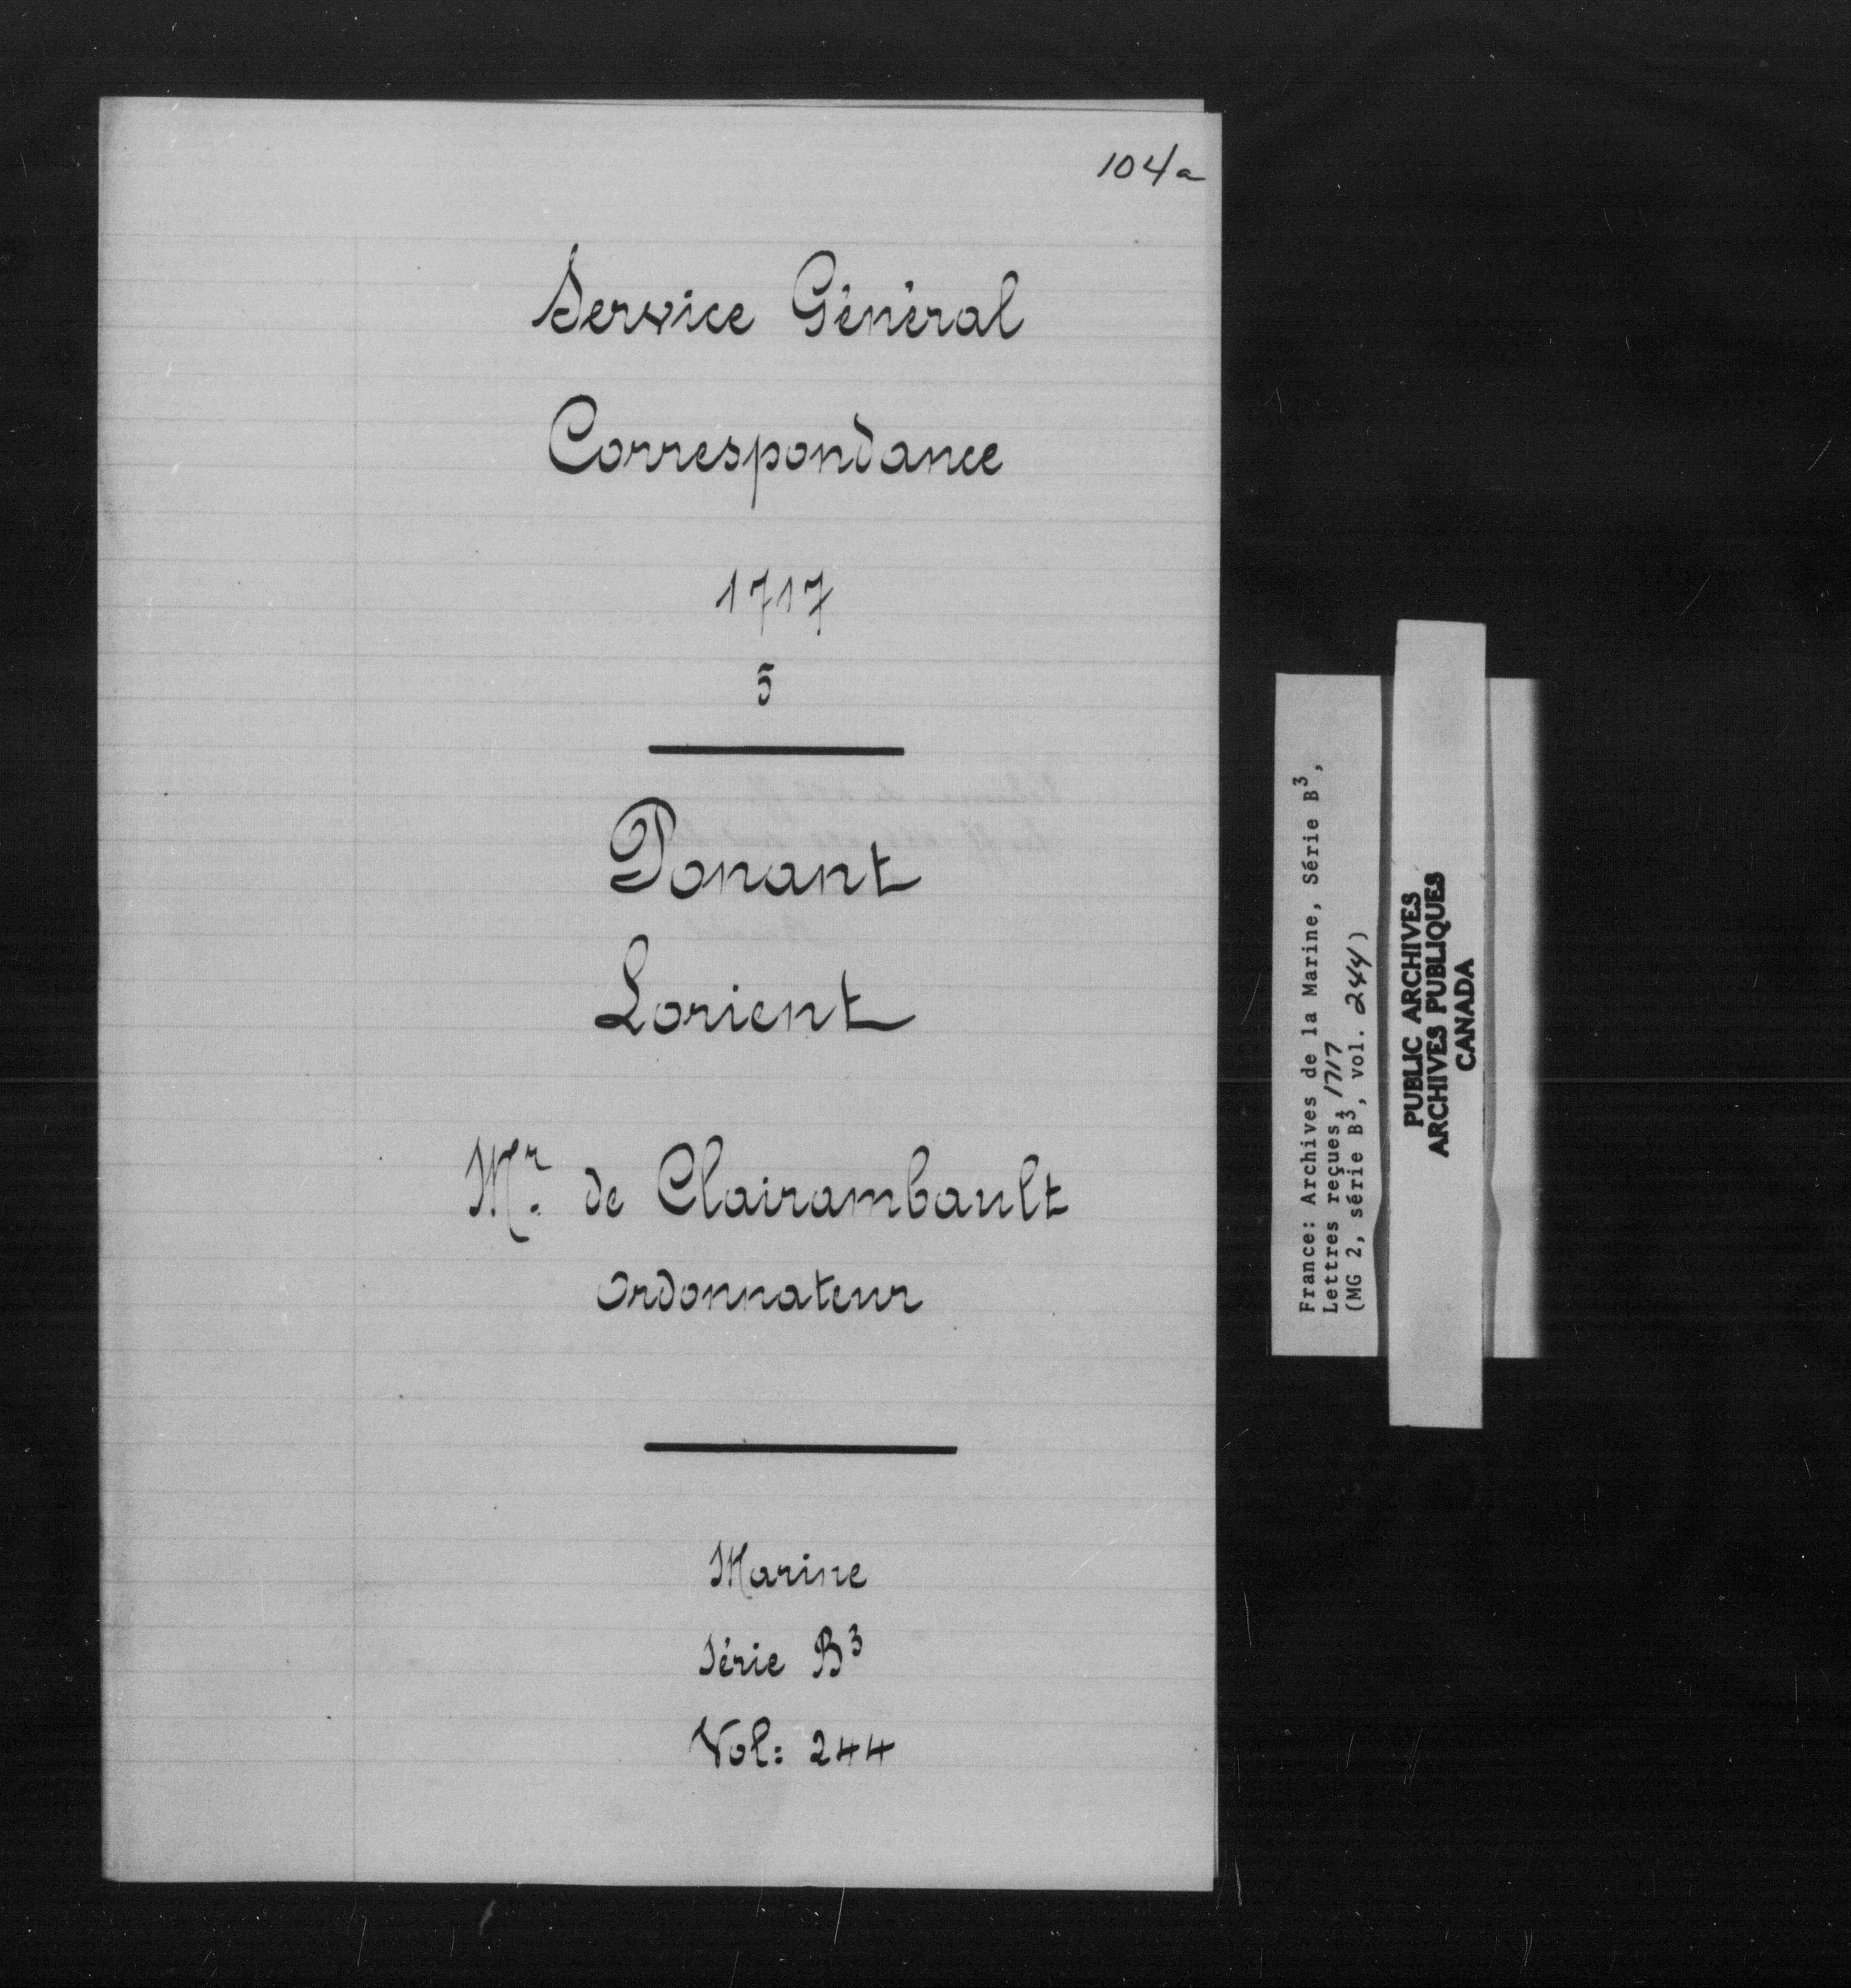 104a
Service Général
Correspondance
1717
5
Ponant
Lorient
Mr. de Clairambault
Ordonnateur
Marine
Série B3
Vol: 244
France: Archives de la Marine, Série B3,
Lettres reçues, 1717
(MG 2, série B3, vol. 244)
PUBLIC ARCHIVES
ARCHIVES PUBLIQUES
CANADA